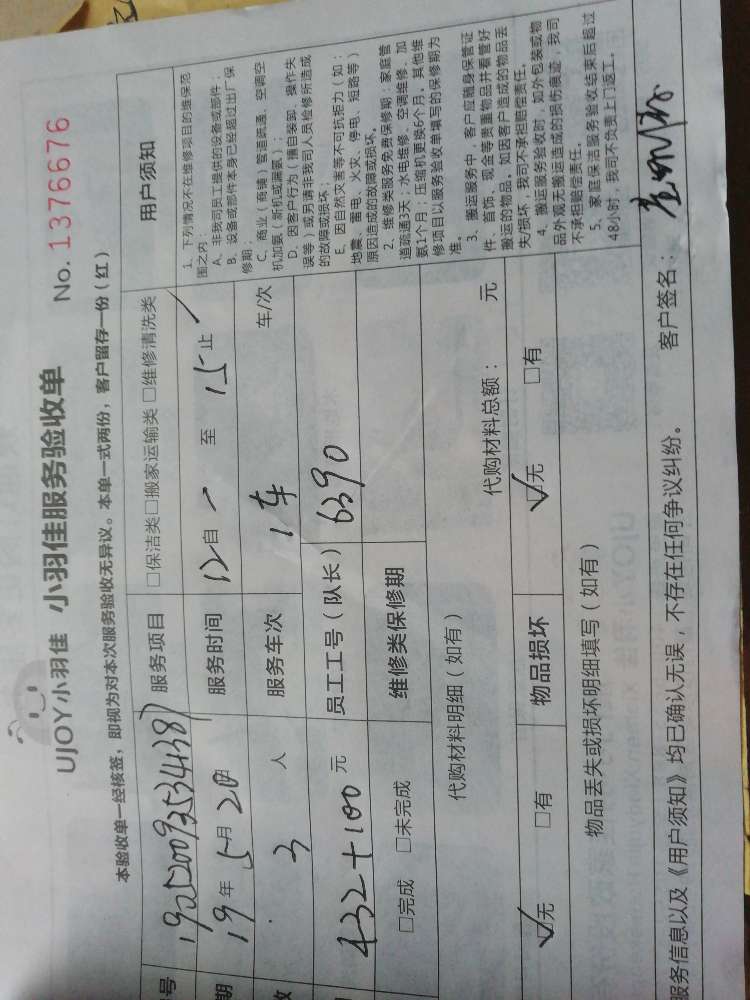 UJOY小羽佳 小羽佳服务验收单 No. 1376676
本验收单一经核签，即视为对本次服务验收无异议。本单一式两份，客户留存一份（红）
号
服务项目 □保洁类□搬家运输类 □维修清洗类
期 19 年 5 月 20 服务时间 12 自 一 至 15 止
数 3 人 服务车次 1车 车/次
432+100 元 员工工号（队长） 6390
□完成 □未完成 维修类保修期
代购材料明细（如有） 代购材料总额： 元
☑无 □有 物品损坏 ☑无 □有
物品丢失或损坏明细填写（如有）
服务信息以及《用户须知》均已确认无误，不存在任何争议纠纷。 客户签名：
用户须知
1、下列情况不在维修项目的维保范
围之内：
A、非我司员工提供的设备或部件；
B、设备或部件本身已经超过出厂保
修期；
C、商业（商铺）管道疏通、空调空
机加氨（新机或漏氨）；
D、因客户行为（擅自装卸、操作失
误等）或另请非我司人员检修所造成
的故障或损坏；
E、因自然灾害等不可抗拒力（如：
地震、雷电、火灾、停电、短路等）
原因造成的故障或损坏。
2、维修类服务免费保修期：家庭管
道疏通3天；水电维修、空调维修、加
氨1个月；压缩机更换6个月，其他维
修项目以服务验收单填写的保修期为
准。
3、搬运服务中，客户应随身保管证
件、首饰、现金等贵重物品并看管好
搬运的物品。如因客户造成的物品丢
失/损坏，我司不承担赔偿责任。
4、搬运服务验收时，如外包装或物
品外观无搬运造成的损伤痕迹，我司
不承担赔偿责任。
5、家庭保洁服务验收结束后超过
48小时，我司不负责上门返工。